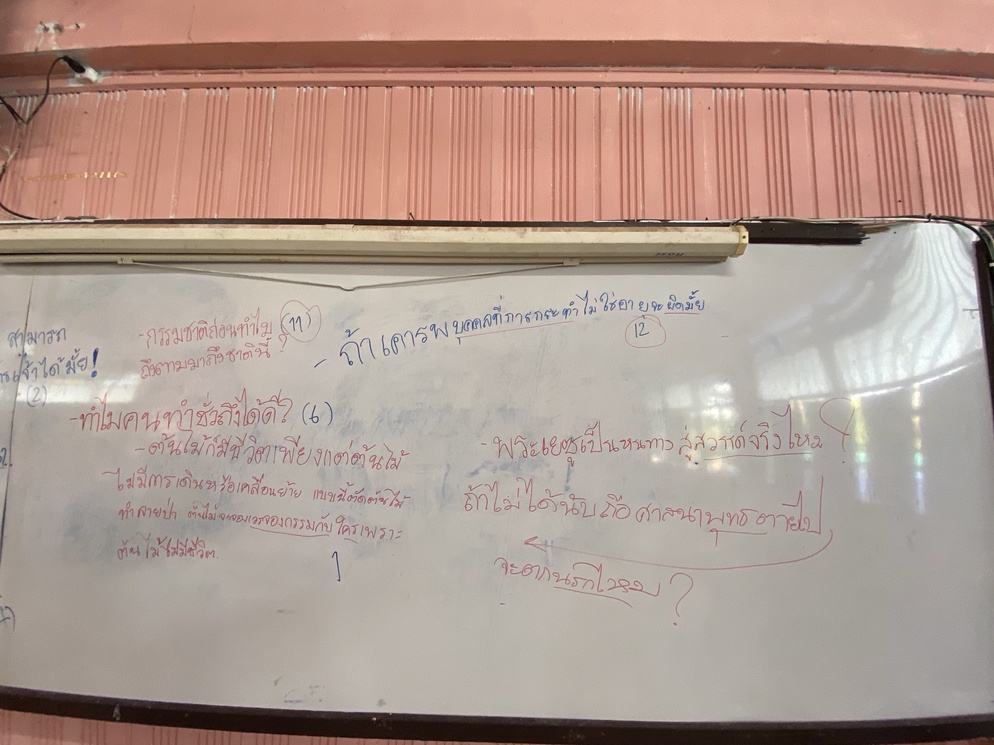 สามารถ
เจ้าได้มั้ย!
(2)
-กรรมชาติก่อนทำไม (11)
ถึงตามมาถึงชาตินี้ ?
- ถ้าเคารพบุคคลที่การกระทำไม่ใช่อายุจะผิดมั้ย
12
-ทำไมคนทำชั่วถึงได้ดี? (6)
-ต้นไม้ก็มีชีวิตเพียงแต่ต้นไม้
ไม่มีการเดินหรือเคลื่อนย้าย แบบนี้ตัดต้นไม้
ทำลายป่า ต้นไม้จะจองเวรจองกรรมกับใครเพราะ
ต้นไม้ไม่มีชีวิต
1
-พระเยซูเป็นหนทางสู่สวรรค์จริงไหม?
ถ้าไม่ได้นับถือศาสนาพุทธตายไป
จะตกนรกไหม?